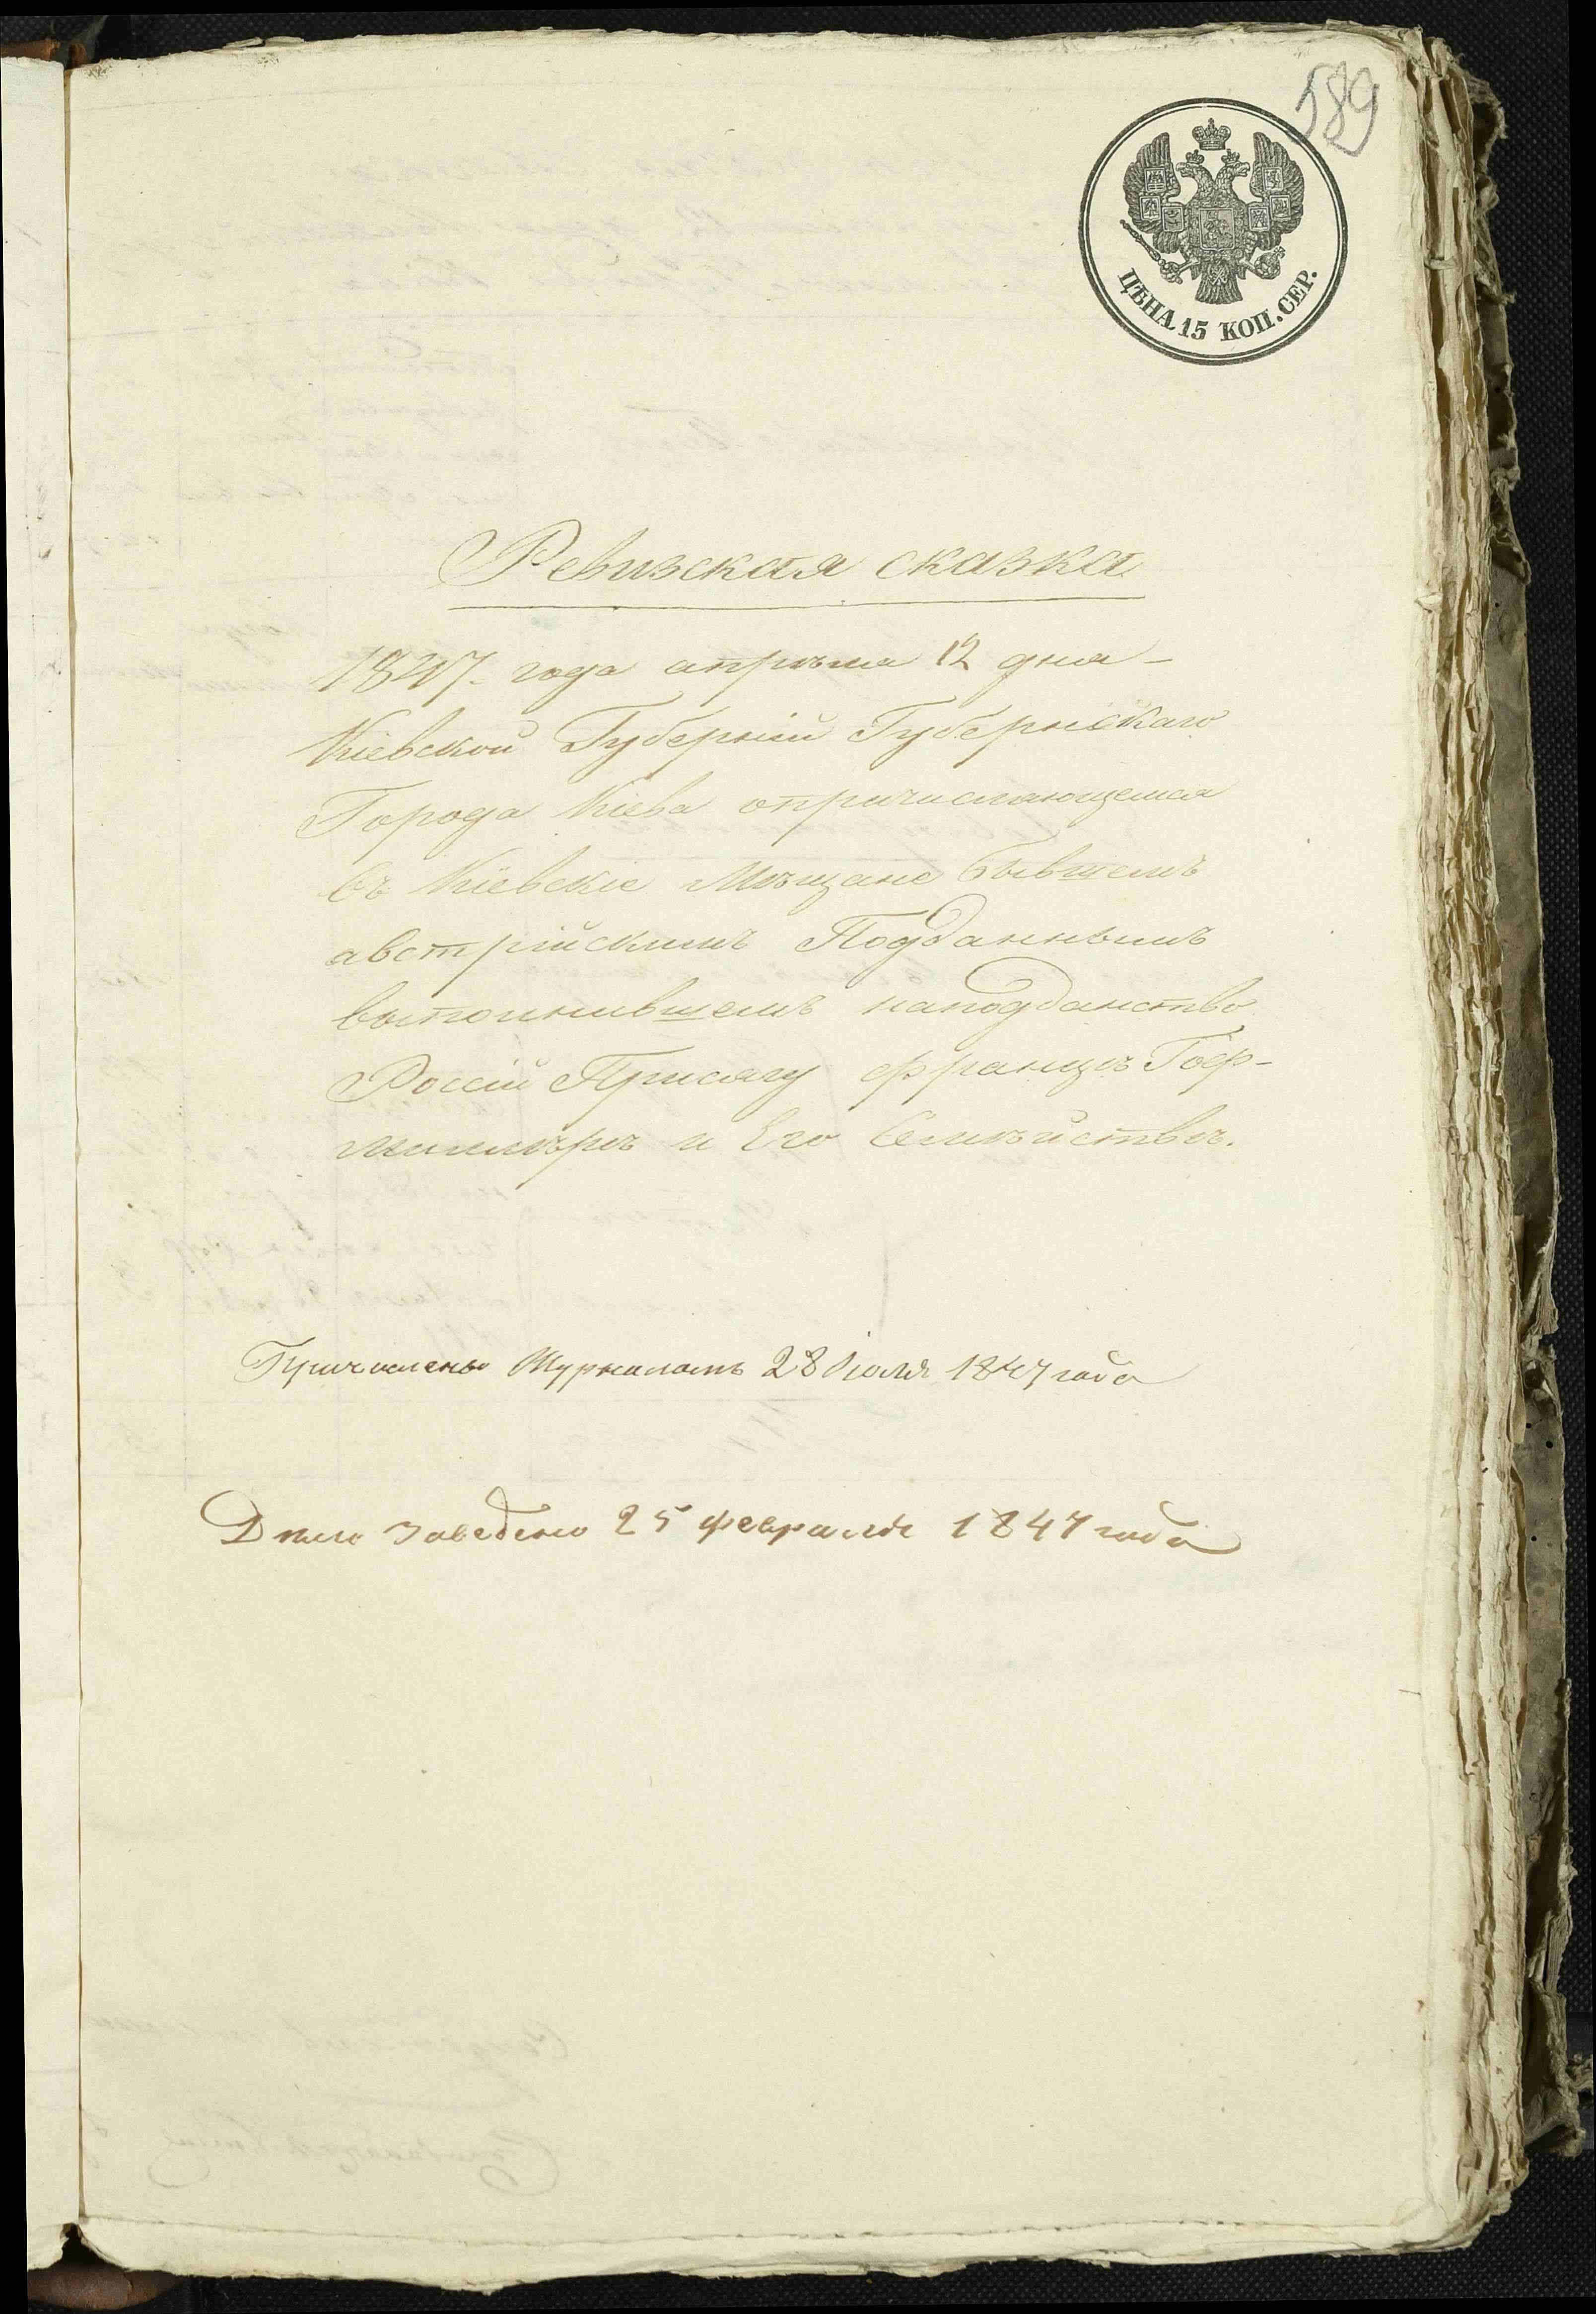 589
ЦѢНА 15 КОП. СЕР.
Ревизская сказка
1847. года апрѣля 12 дня
Кіевской Губерніи Губернскаго
Города Кіева опричисляющемся
въ Кіевскіе Мѣщане бывшемъ
австрійскимъ Подданнымъ
выполнившемъ наподданство
Россіи Присягу францъ Гоф-
и Его Семѣйствѣ.
Причислены Журналомъ 28 Іюля 1847 года
Дѣло заведено 25 февраля 1847 года